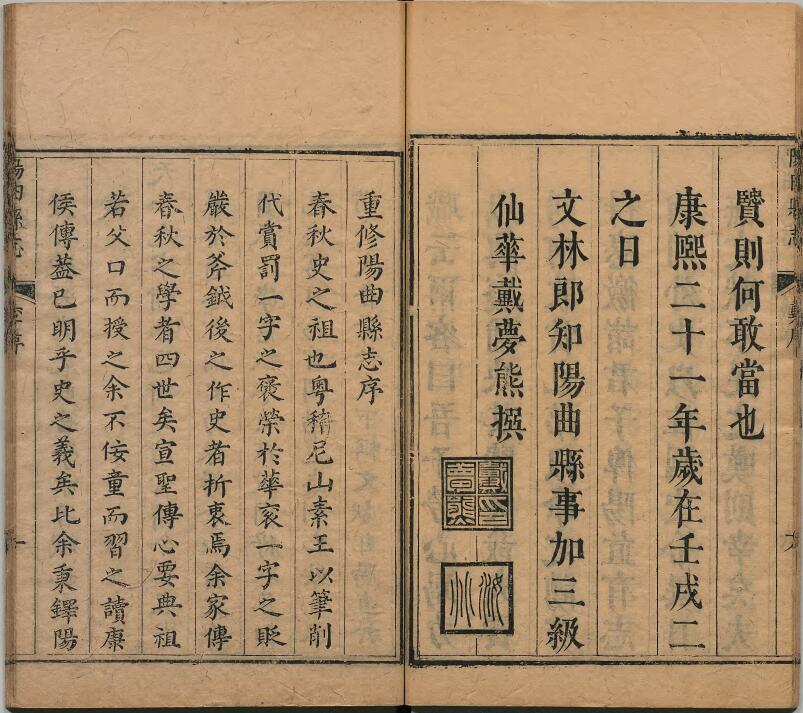 賢則何敢當也
康熙二十一年歲在壬戌二
之日
文林郎知陽曲縣事加三級
仙華戴夢熊撰
重修陽曲縣志序
春秋史之祖也粵稽尼山素王以筆削
代賞罰一字之褒榮於華衮一字之貶
嚴於斧鉞後之作史者折衷焉余家傳
春秋之學者四世矣宣聖傳心要典祖
若父口而授之余不佞童而習之讀康
侯傳葢已明乎史之義矣比余秉鐸陽